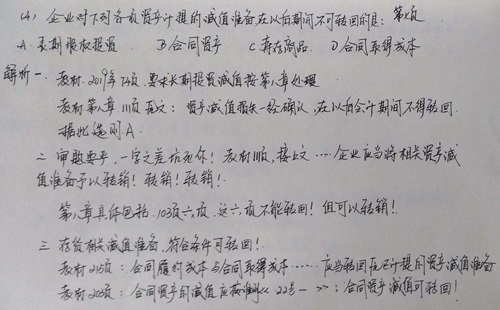 (4) 企业对下列各项资产计提的减值准备在以后期间不可转回的是: 第2版
A 长期股权投资 B 合同资产 C 库存商品 D 合同取得成本
解析一. 教材 2019年74页 要求长期投资减值按第八章处理
教材第八章 111页 原文: 资产减值损失一经确认, 在以后会计期间不得转回.
据此选则A.
二 审题要平, 一字之差坑死你! 教材111页, 接上文 ····· 企业应当将相关资产减
值准备予以转销! 转销! 转销!
第八章具体包括. 103页六项. 这六项不能转回! 但可以转销!
三 存货相关减值准备, 符合条件可转回!
教材215页: 合同履约成本与合同取得成本 ······ 应当转回原已计提的资产减值准备
教材203页: 合同资产的减值应按准则<< 22号 — >>: 合同资产减值可转回!